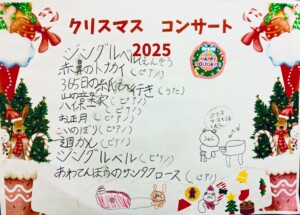 クリスマス コンサート
2025
HAPPY
HOLIDAYS
ジングルベル えんそう
赤鼻のトナカイ(ピアノ)
365日の 行き(うた)
山の音楽家(ピアノ)
ハイホー(ピアノ)
お正月(ピアノ)
こいのぼり(ピアノ)
一週かん(ピアノ)
ジングルベル(ピアノ)
あわてんぼうのサンタクロース(ピアノ)
クリス